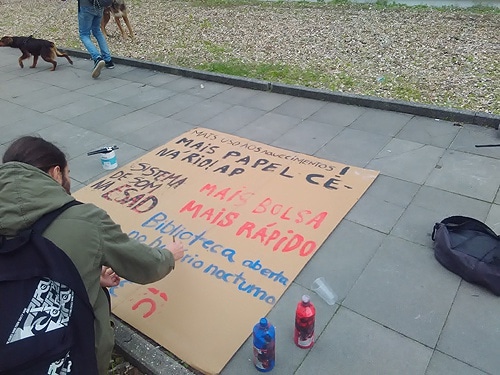 MAIS USO AOS AQUECIMENTOS!
MAIS PAPEL CE-
NÁRIO/.AP
SISTEMA
DE SOM
NA ESAD
MAIS BOLSA
MAIS RÁPIDO
Biblioteca aberta
no horário nocturno